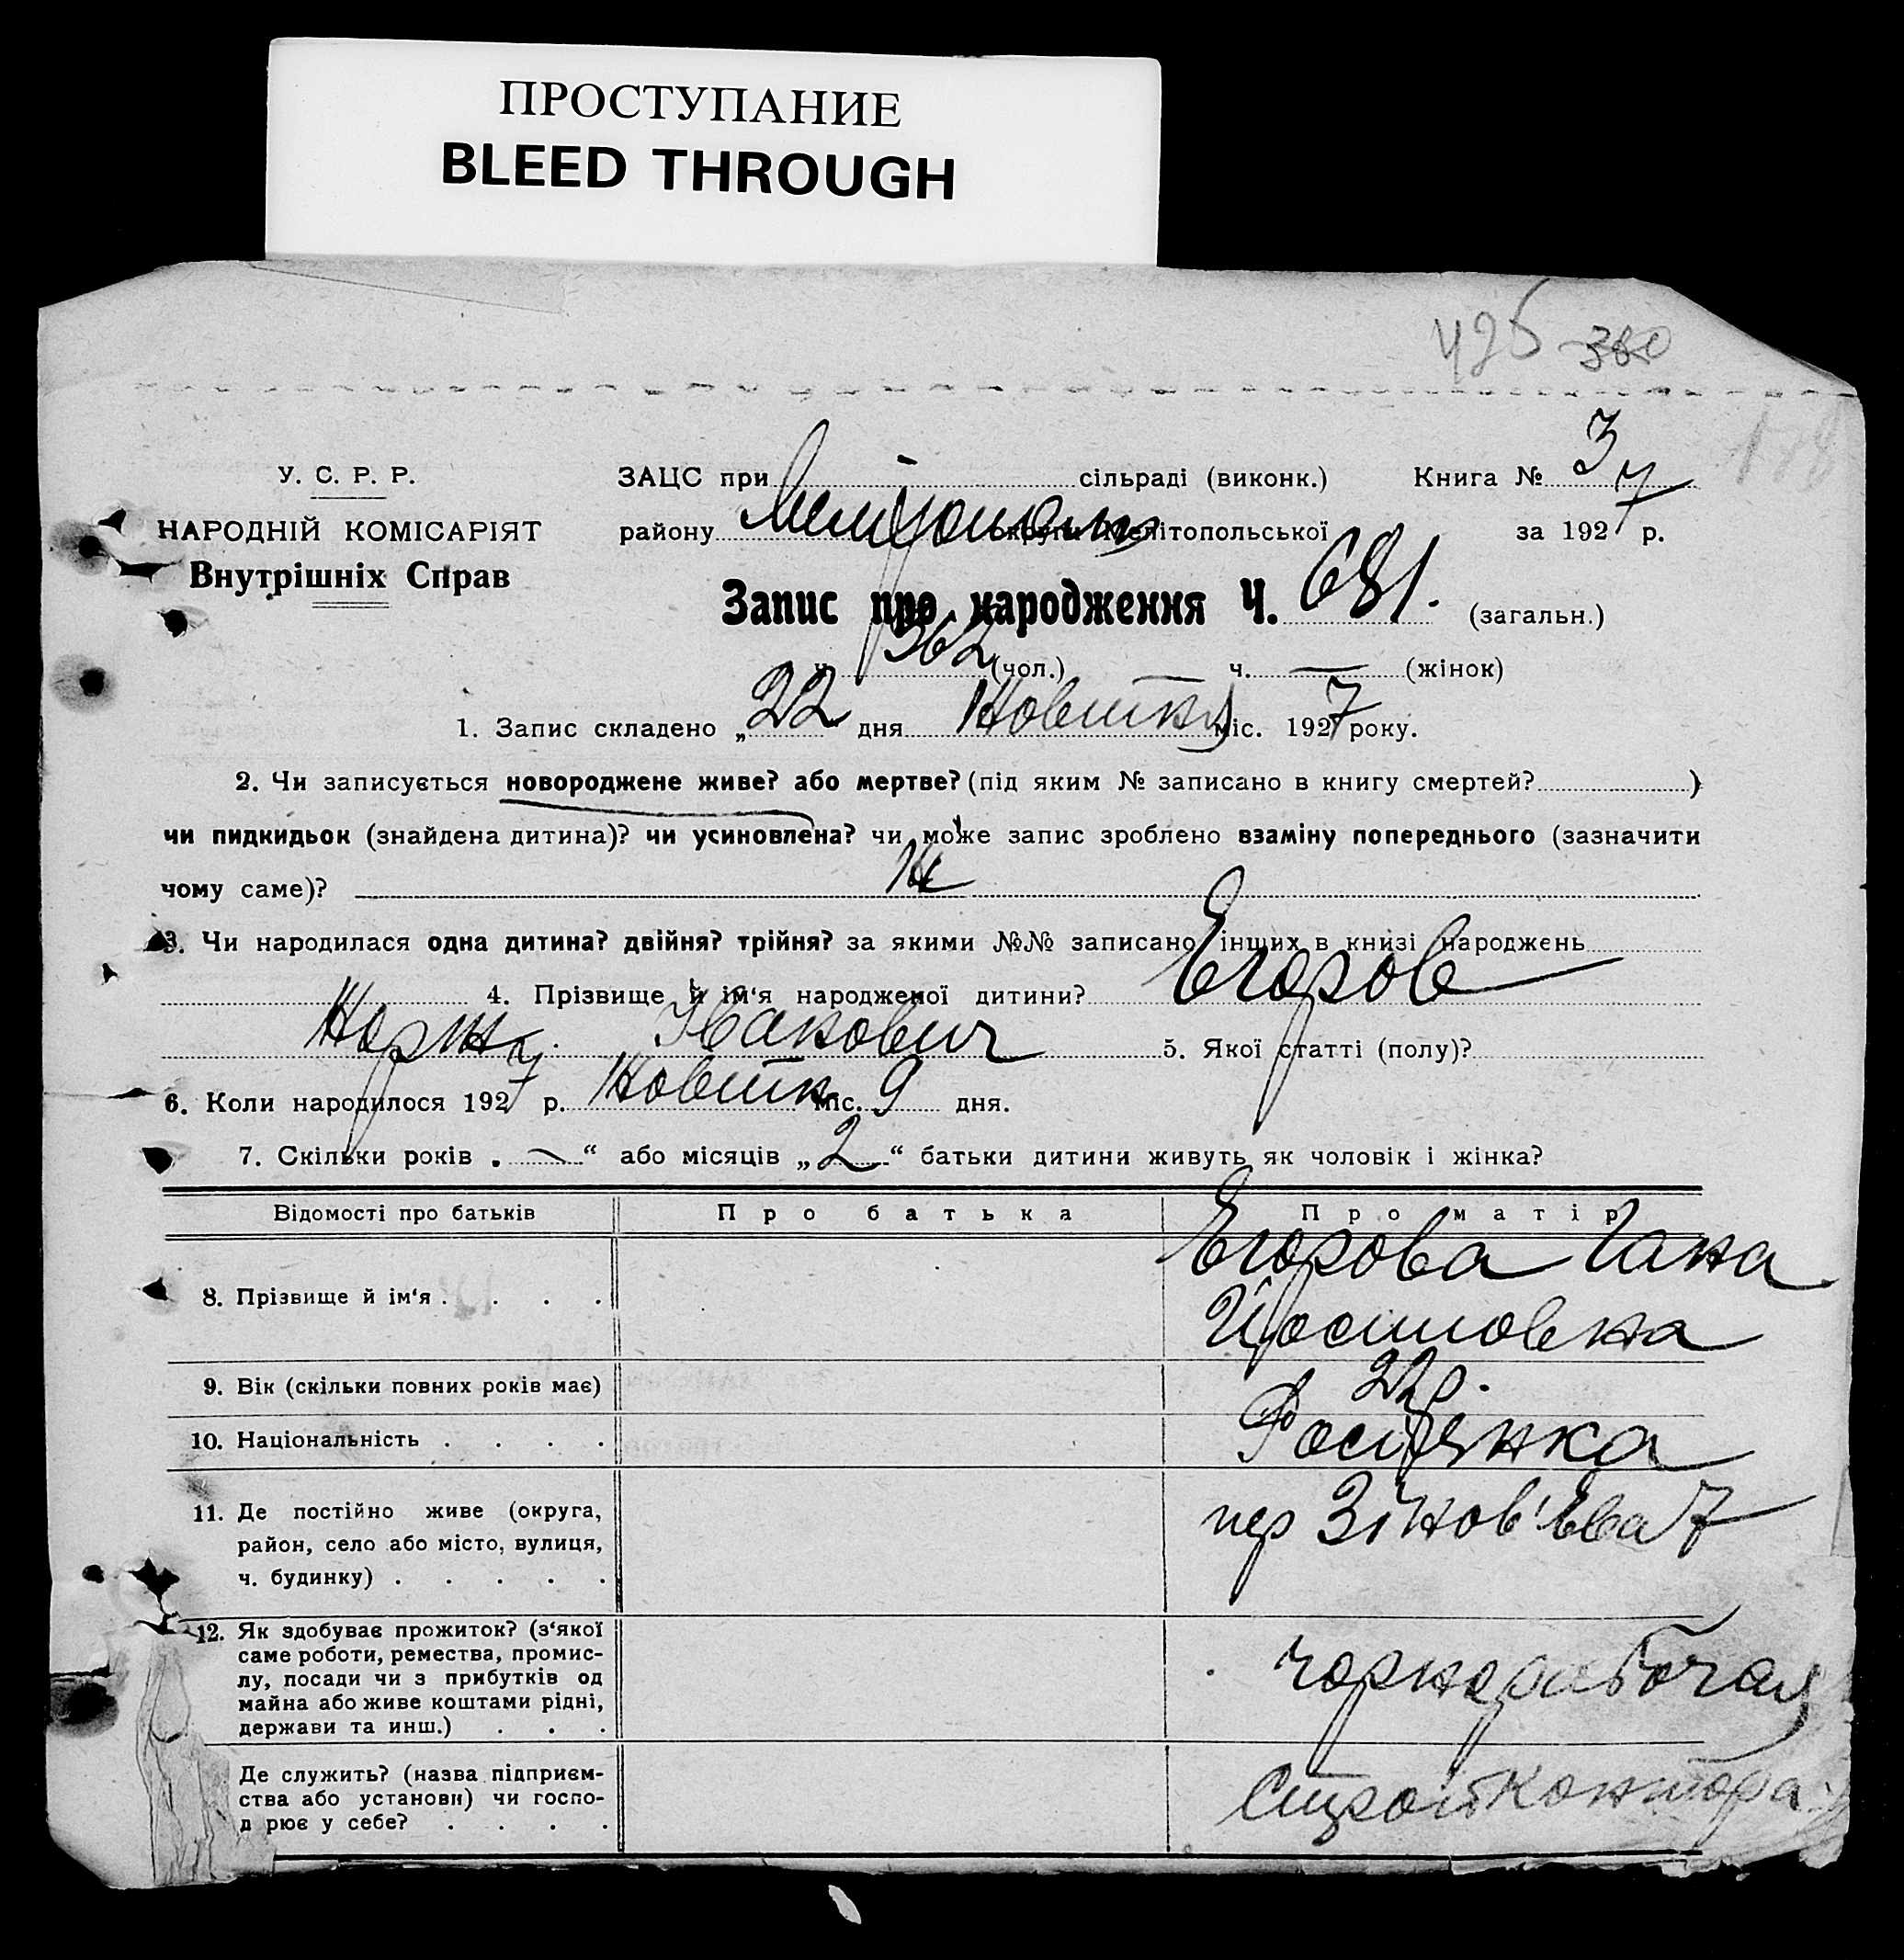 ПРОСТУПАНИЕ
BLEED THROUGH
425 380
У. С. Р. Р.
НАРОДНІЙ КОМІСАРІЯТ
Внутрішніх Справ
ЗАЦС при сільраді (виконк.) Книга № 3
району округи Мелітопольської за 1927 р.
Запис про народження Ч. 681. (загальн.)
ч. 362 (чол.) ч. — (жінок)
1. Запис складено „22“ дня Жовтня міс. 1927 року.
2. Чи записується новороджене живе? або мертве? (під яким № записано в книгу смертей? )
чи пидкидьок (знайдена дитина)? чи усиновлена? чи може запис зроблено взаміну попереднього (зазначити
чому саме)?
3. Чи народилася одна дитина? двійня? трійня? за якими №№ записано інших в книзі народжень
4. Прізвище й ім‘я народженої дитини? Егоров
Жорж Іванович 5. Якої статті (полу)?
6. Коли народилося 1927 р. Жовтн міс. 9 дня.
7. Скільки років „—“ або місяців „2“ батьки дитини живуть як чоловік і жінка?
Відомості про батьків Про батька Про матір
8. Прізвище й ім‘я . . . . Егорова Гана
9. Вік (скільки повних років має) 22 р.
10. Національність . . . . Росіянка
11. Де постійно живе (округа,
район, село або місто, вулиця,
ч. будинку) . . . . . пер Зінов'Ева 7
12. Як здобуває прожиток? (з‘якої
саме роботи, ремества, промис-
лу, посади чи з прибутків од
майна або живе коштами рідні,
держави та инш.) . . . чорнорабочая
Де служить? (назва підприєм-
ства або установи) чи госпо-
д рює у себе? . . . . Стройконтора